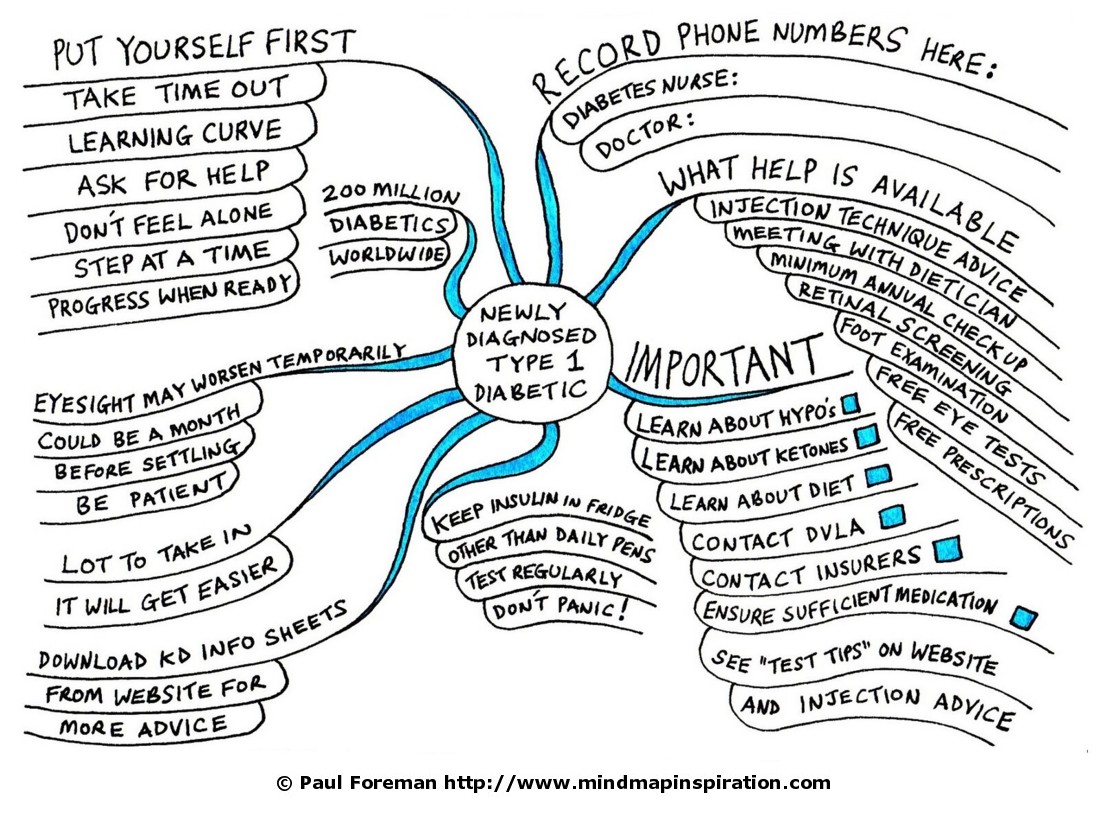 PUT YOURSELF FIRST
TAKE TIME OUT
LEARNING CURVE
ASK FOR HELP
DON'T FEEL ALONE
STEP AT A TIME
PROGRESS WHEN READY
200 MILLION
DIABETICS
WORLDWIDE
RECORD PHONE NUMBERS HERE:
DIABETES NURSE:
DOCTOR:
WHAT HELP IS AVAILABLE
INJECTION TECHNIQUE ADVICE
MEETING WITH DIETICIAN
MINIMUM ANNUAL CHECK UP
RETINAL SCREENING
FOOT EXAMINATION
FREE EYE TESTS
FREE PRESCRIPTIONS
NEWLY
DIAGNOSED
TYPE 1
DIABETIC
EYESIGHT MAY WORSEN TEMPORARILY
COULD BE A MONTH
BEFORE SETTLING
BE PATIENT
LOT TO TAKE IN
IT WILL GET EASIER
DOWNLOAD KD INFO SHEETS
FROM WEBSITE FOR
MORE ADVICE
KEEP INSULIN IN FRIDGE
OTHER THAN DAILY PENS
TEST REGULARLY
DON'T PANIC!
IMPORTANT
LEARN ABOUT HYPO's
LEARN ABOUT KETONES
LEARN ABOUT DIET
CONTACT DVLA
CONTACT INSURERS
ENSURE SUFFICIENT MEDICATION
SEE "TEST TIPS" ON WEBSITE
AND INJECTION ADVICE
© Paul Foreman http://www.mindmapinspiration.com